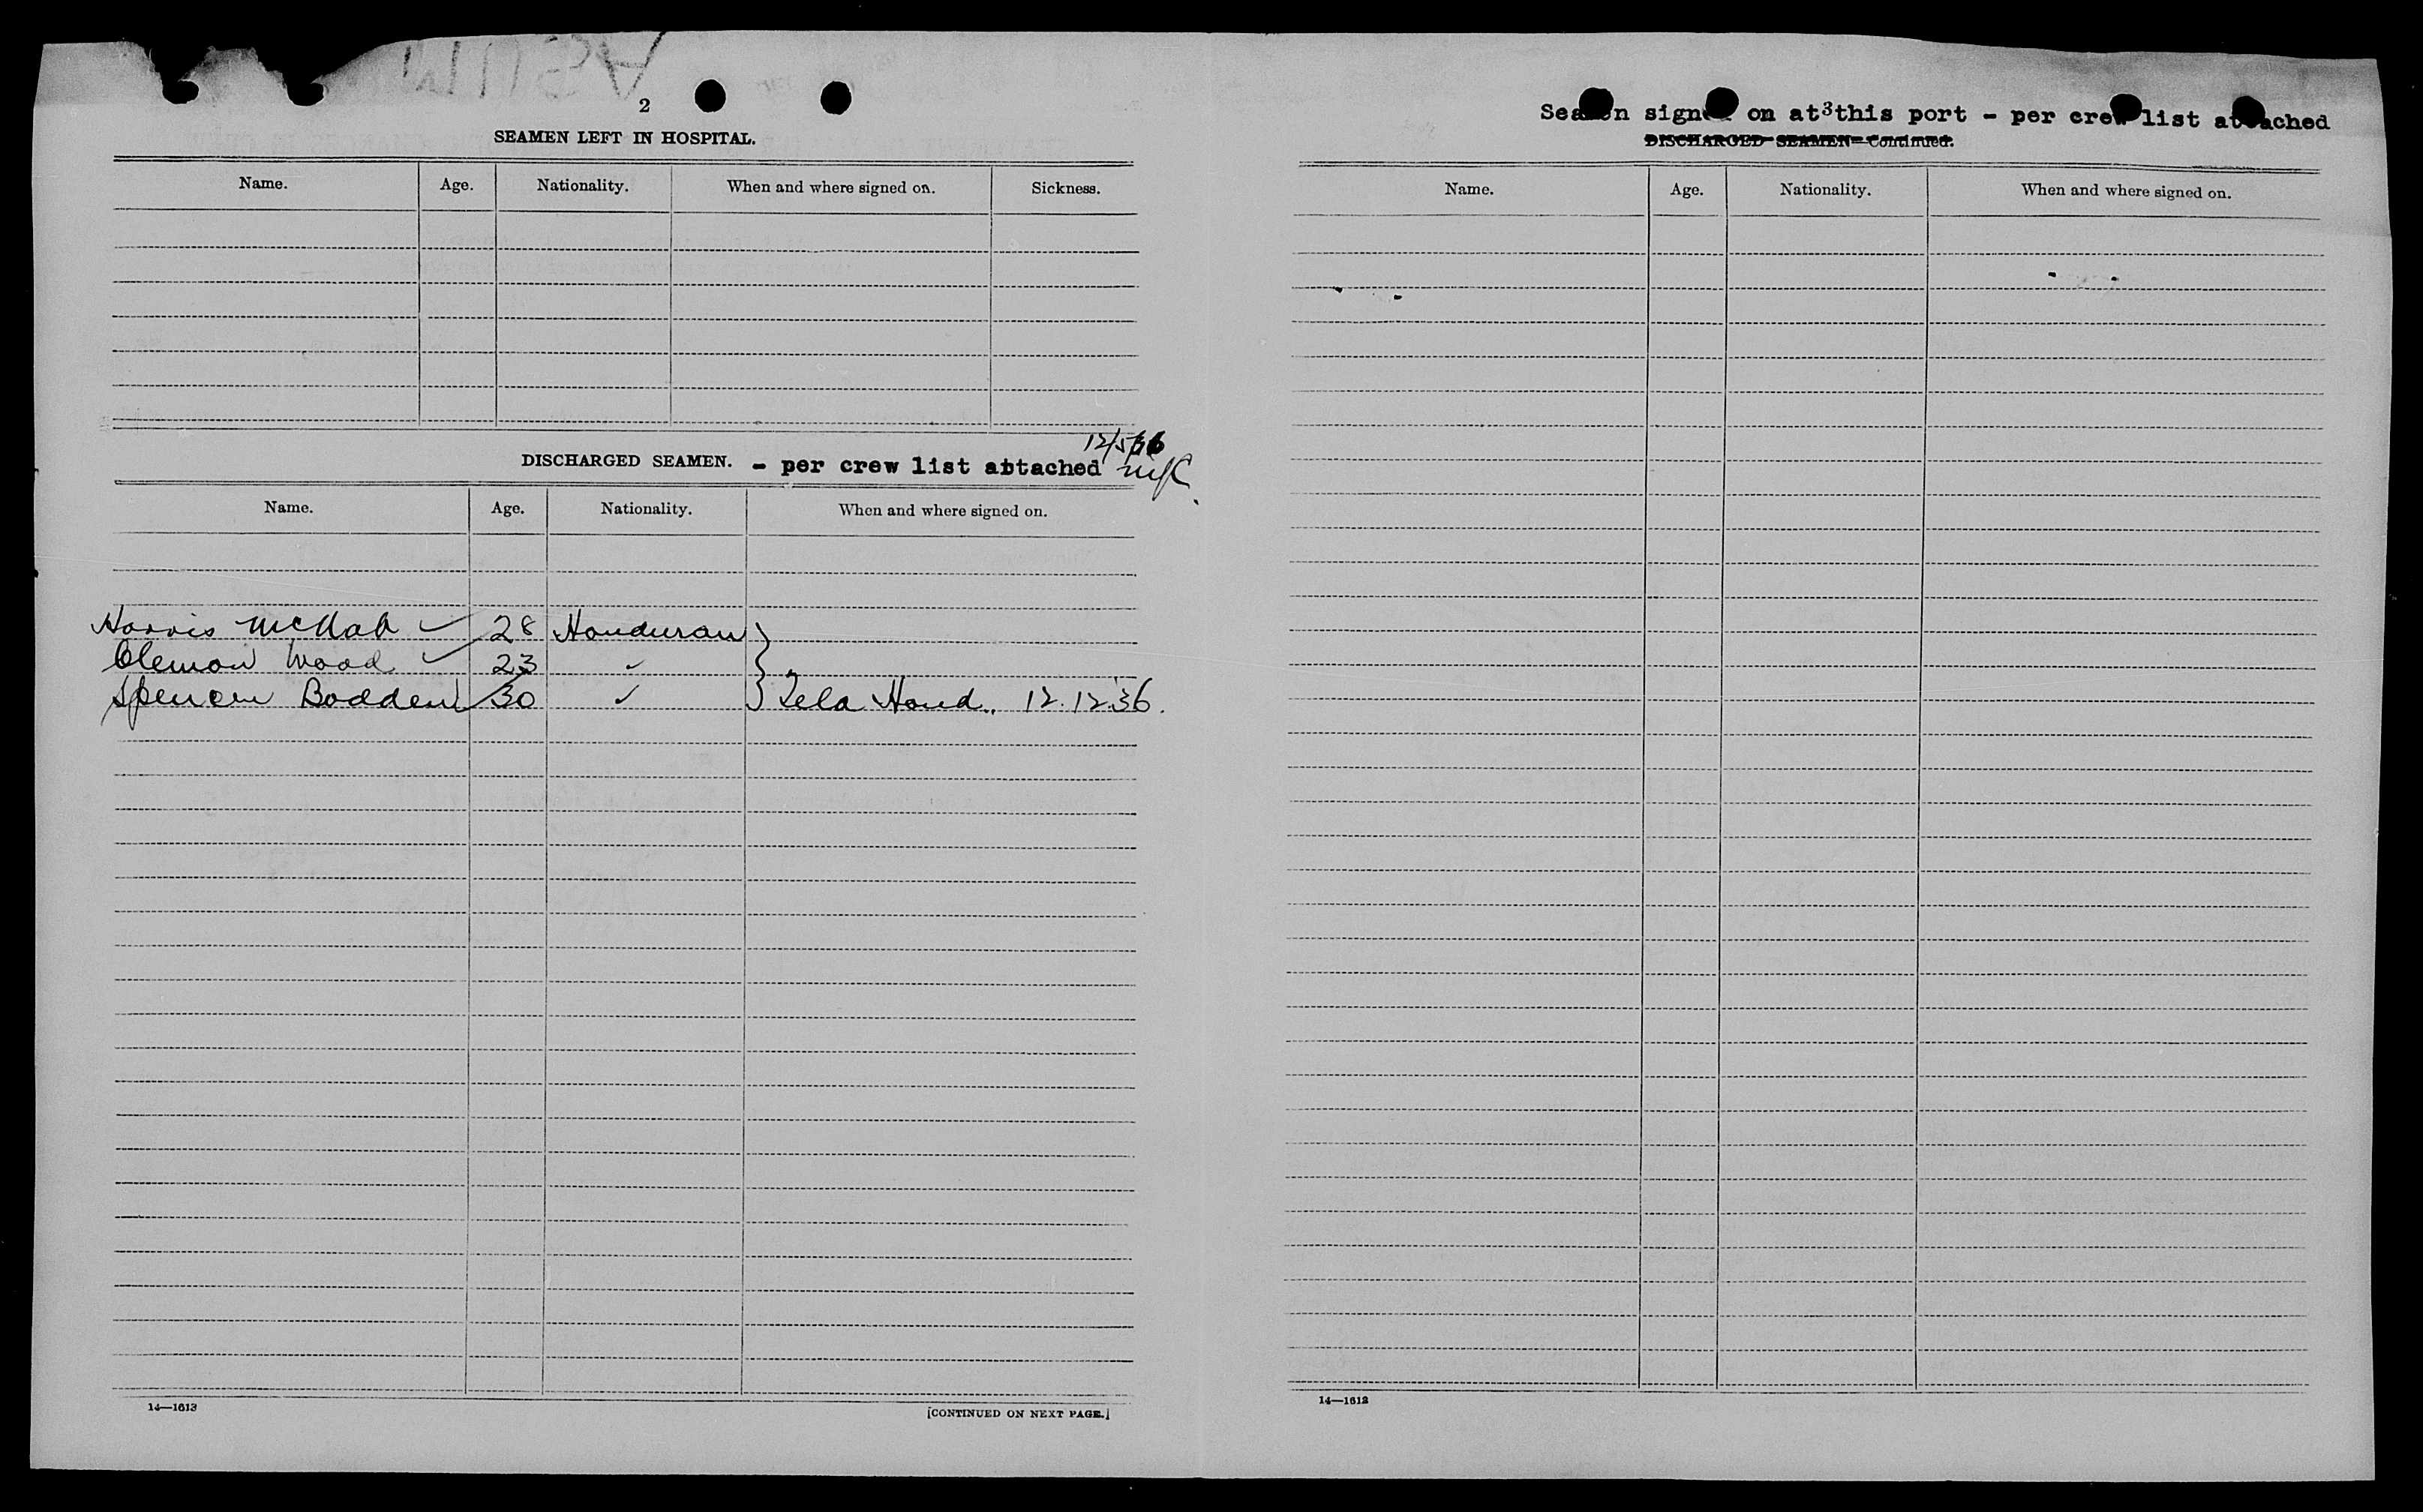 2
SEAMEN LEFT IN HOSPITAL.
Name. Age. Nationality. When and where signed on. Sickness.
12/5/36
DISCHARGED SEAMEN. - per crew list attached
Name. Age. Nationality. When and where signed on.
Harris McNab ✓ 28 Honduran
Clemon Wood ✓ 23 ✓
Spencer Bodden 30 ✓ } Tela Hond. 12.12.36.
14—1613
[CONTINUED ON NEXT PAGE.]
Seamen signed on at this port - per crew list attached
3
DISCHARGED SEAMEN—Continued.
Name. Age. Nationality. When and where signed on.
14—1613